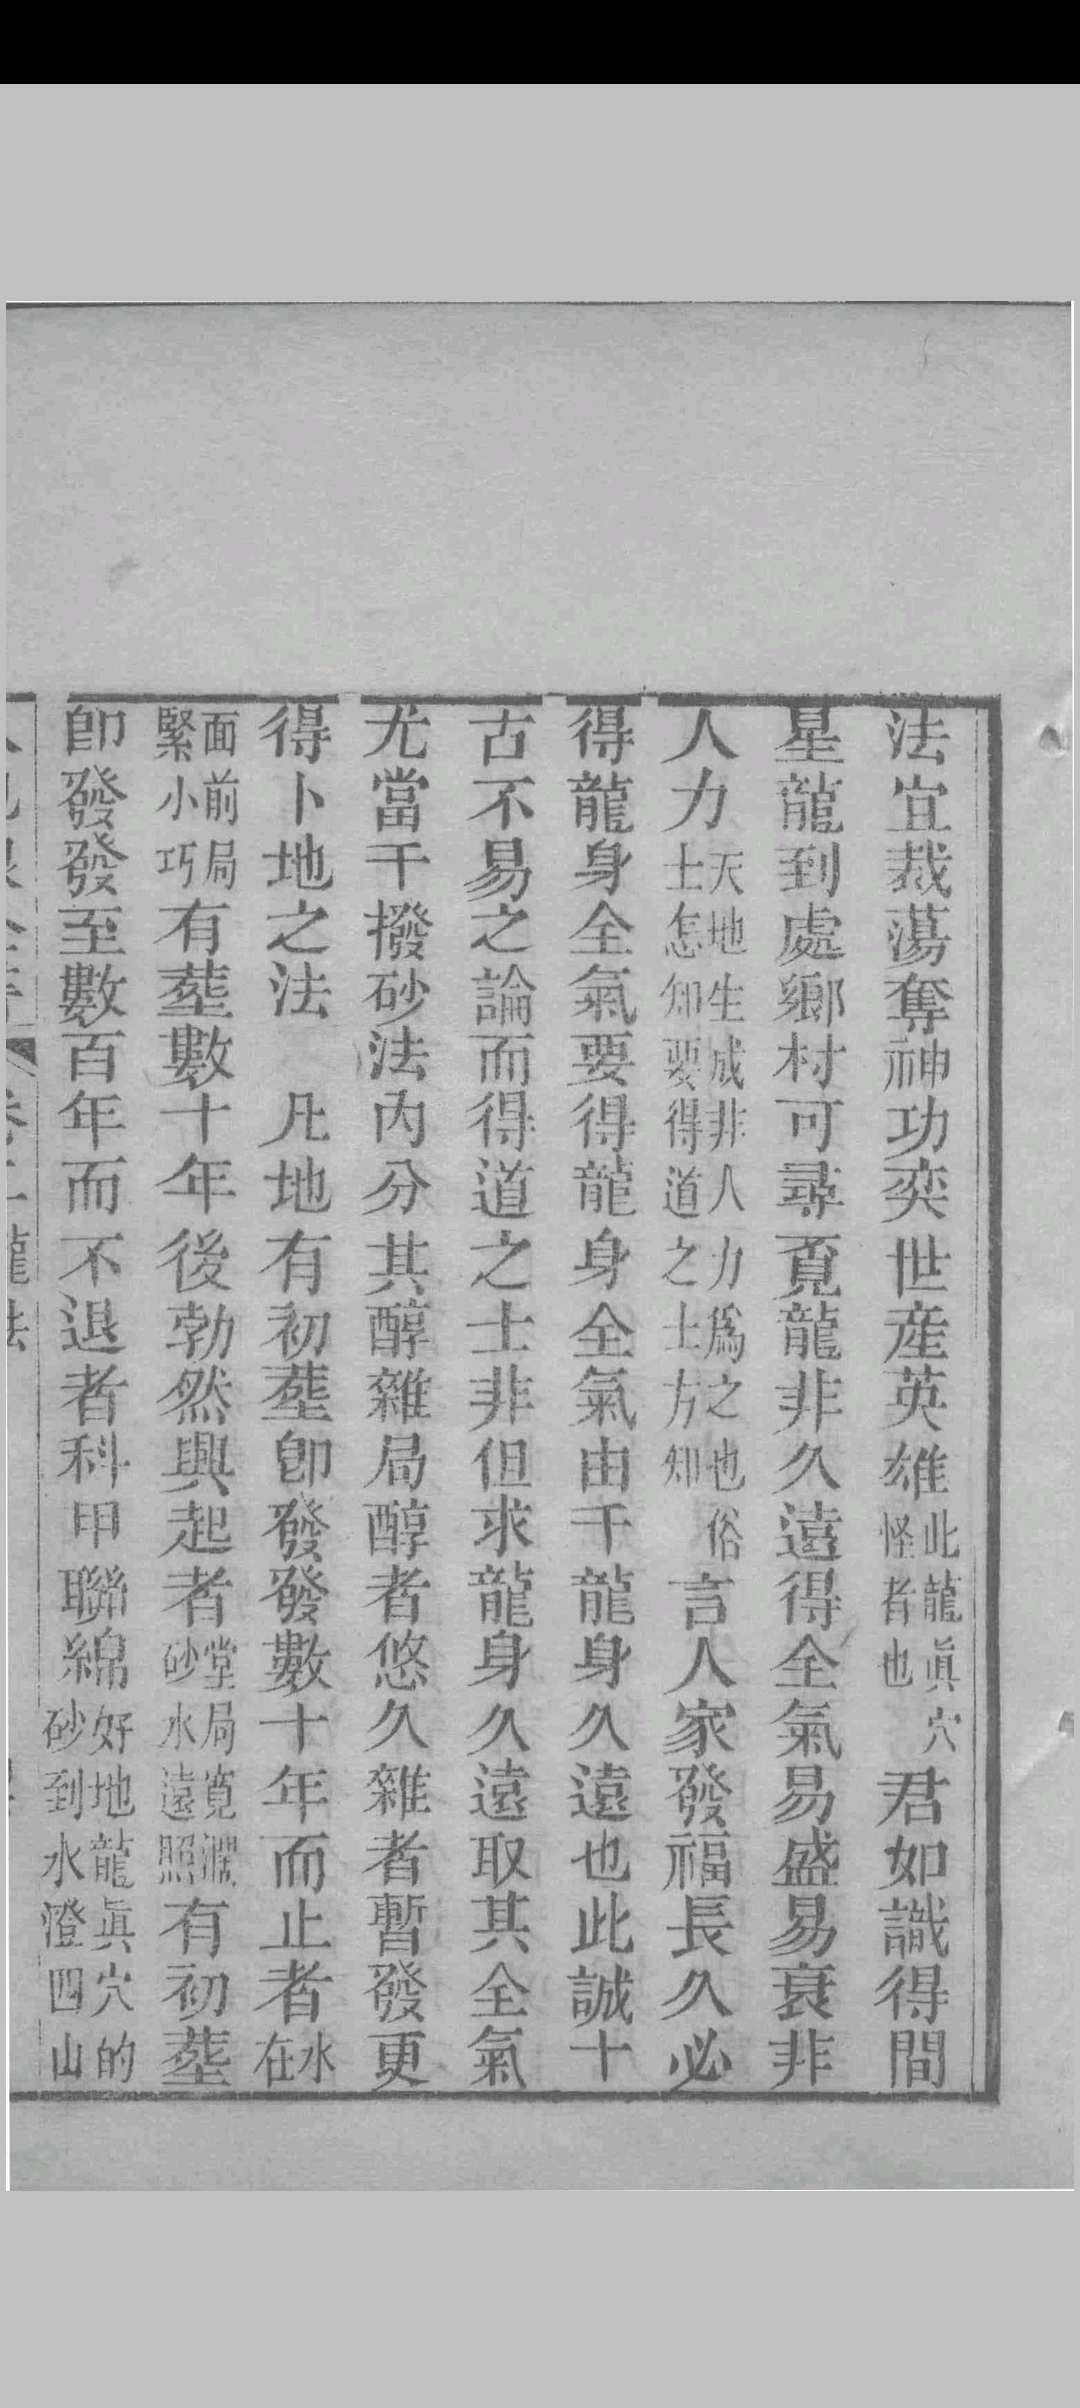 法宜裁蕩奪神功奕世産英雄此龍眞穴怪者也君如識得間
星龍到處鄉村可尋覓龍非久遠得全氣易盛易衰非
人力天地生成非人力爲之也俗士怎知要得道之士方知言人家發福長久必
得龍身全氣要得龍身全氣由千龍身久遠也此誠十
古不易之論而得道之士非但求龍身久遠取其全氣
尤當干撥砂法內分其醇雜局醇者悠久雜者暫發更
得卜地之法　凡地有初塟卽發發數十年而止者水在
面前局緊小巧有塟數十年後勃然興起者堂局寬濶砂水遠照有初塟
卽發發至數百年而不退者科甲聯綿好地龍眞穴的砂到水澄四山